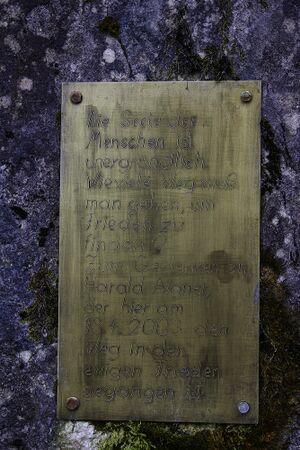 Die Seele des
Menschen ist
unergründlich
Wieviele Wege muß
man gehen, um
Frieden zu
finden?
Zum Gedenken an
Harald
der hier am
den
Weg in den
ewigen Frieden
gegangen ist.